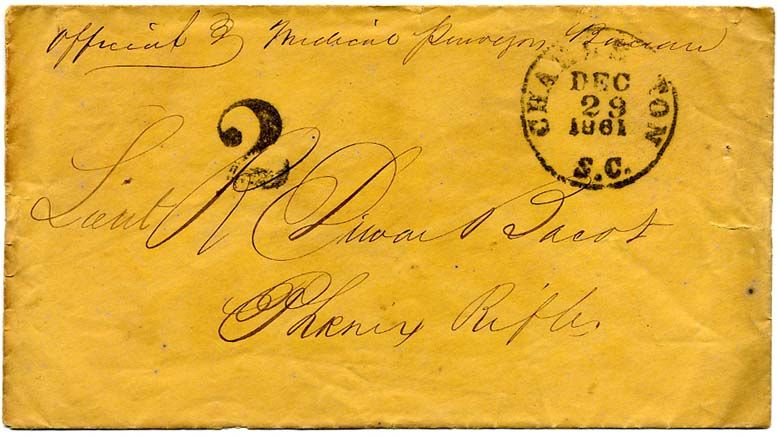 Official } Medical Purveyors Bureau
CHARLESTON
DEC
29
1861
S.C.
2
Lieut R Dewar Bacot
Phenix Rifles